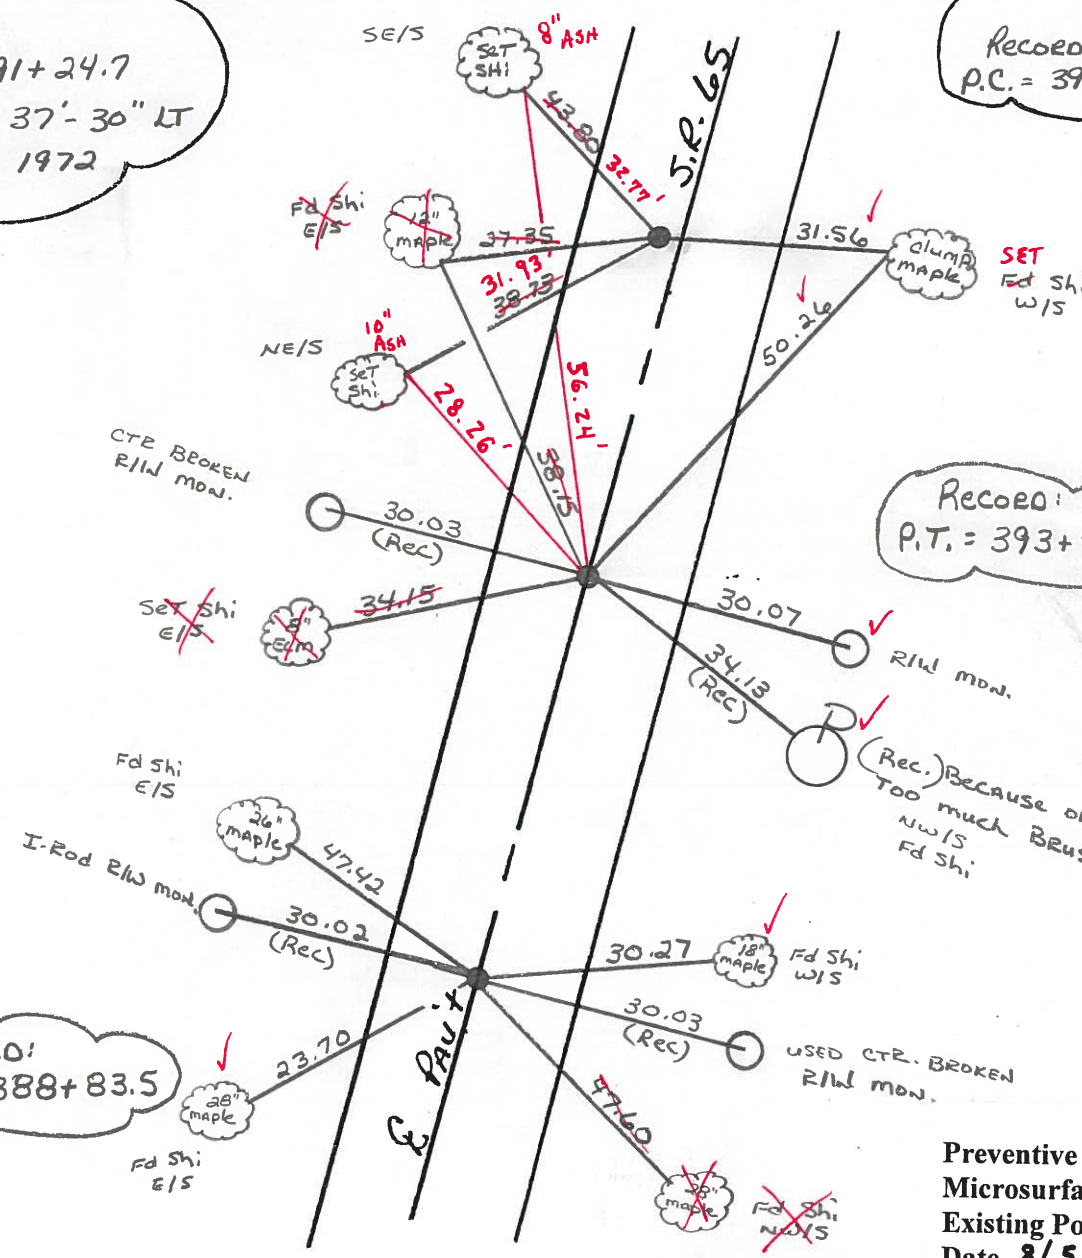 91+24.7
37'-30" LT
1972
SE/S
SET
SHI
8" ASH
S.R. 65
RECORD
P.C. = 39
43.80
32.77'
Fd Shi
E/S
12"
MAPLE
37.35
31.93'
38.73
31.56
CLUMP
MAPLE
SET
Fd Shi
W/S
50.26
NE/S
10"
ASH
SET
Shi
28.26'
56.24'
58.15
CTR BROKEN
R/W MON.
30.03
(Rec)
RECORD:
P.T. = 393+
SeT Shi
E/S
8"
ELM
34.15
30.07
R/W MON.
34.13
(Rec)
P
(Rec.) BECAUSE OF
TOO much BRUS
NW/S
Fd Shi
Fd Shi
E/S
26"
MAPLE
47.42
I-Rod R/W MON.
30.02
(Rec)
30.27
18"
MAPLE
Fd Shi
W/S
30.03
(Rec)
USED CTR. BROKEN
R/W MON.
D:
388+83.5
23.70
28"
MAPLE
Fd Shi
E/S
℄ PAV't
47.60
28"
MAPLE
Fd Shi
NW/S
Preventive
Microsurfa
Existing Po
Date 8/5